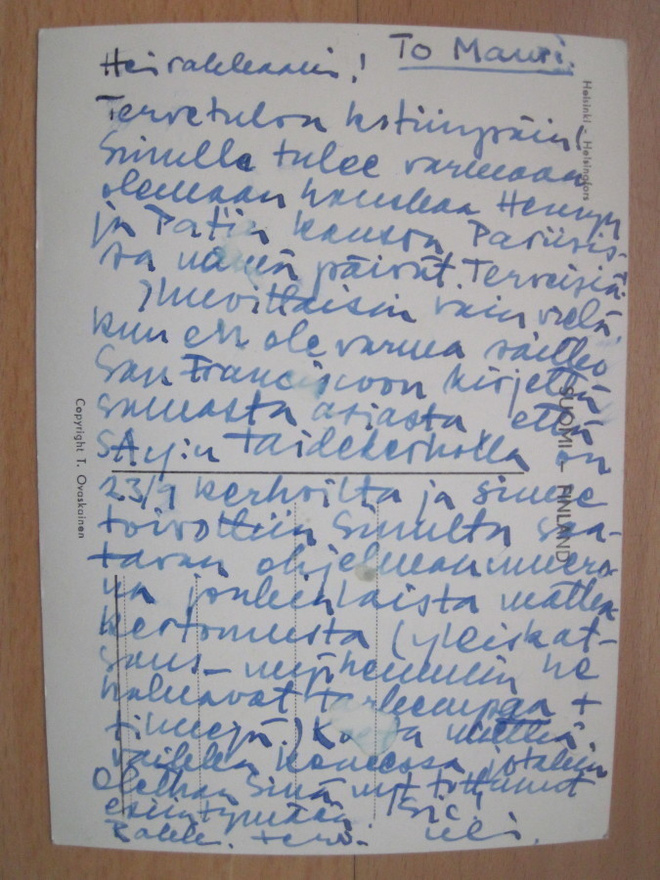 Hei rakkaani! To Mauri.
Tervetuloa kotiinpäin!
Sinulla tulee varmaan
olemaan hauskaa Hennyn
ja Patin kanssa Pariisis-
sa nämä päivät. Terveisiä.
Ilmoittaisin vain vielä
kun en ole varma saitko
San Franciscoon kirjettä
samasta asiasta että
SAy:n taidekerholla on
23/9 kerhoilta ja sinne
toivottiin Sinulta saa-
tavan ohjelmanumero-
na jonkinlaista matka-
kertomusta (yleiskat-
saus- ne
haluavat tarkempaa +
vaikka koneessa jotakin
Olethan Sinä nyt tottunut
esiintymään. (Sic!
Rakk. terv.
Helsinki - Helsingfors
SUOMI - FINLAND
Copyright T. Ovaskainen